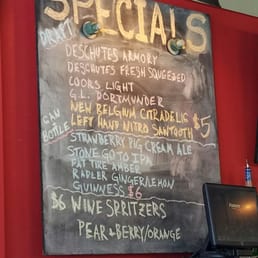 SPECIALS
DRAFT
DESCHUTES ARMORY
DESCHUTES FRESH SQUEEZED
COORS LIGHT
G.L. DORTMUNDER
NEW BELGIUM CITRADELIC
LEFT HAND NITRO SAWTOOTH
$5
CAN
BOTTLE
STRAWBERRY PIG CREAM ALE
STONE GOTO IPA
FAT TIRE AMBER
RADLER GINGER/LEMON
GUINNESS $6
$6 WINE SPRITZERS
PEAR & BERRY/ORANGE